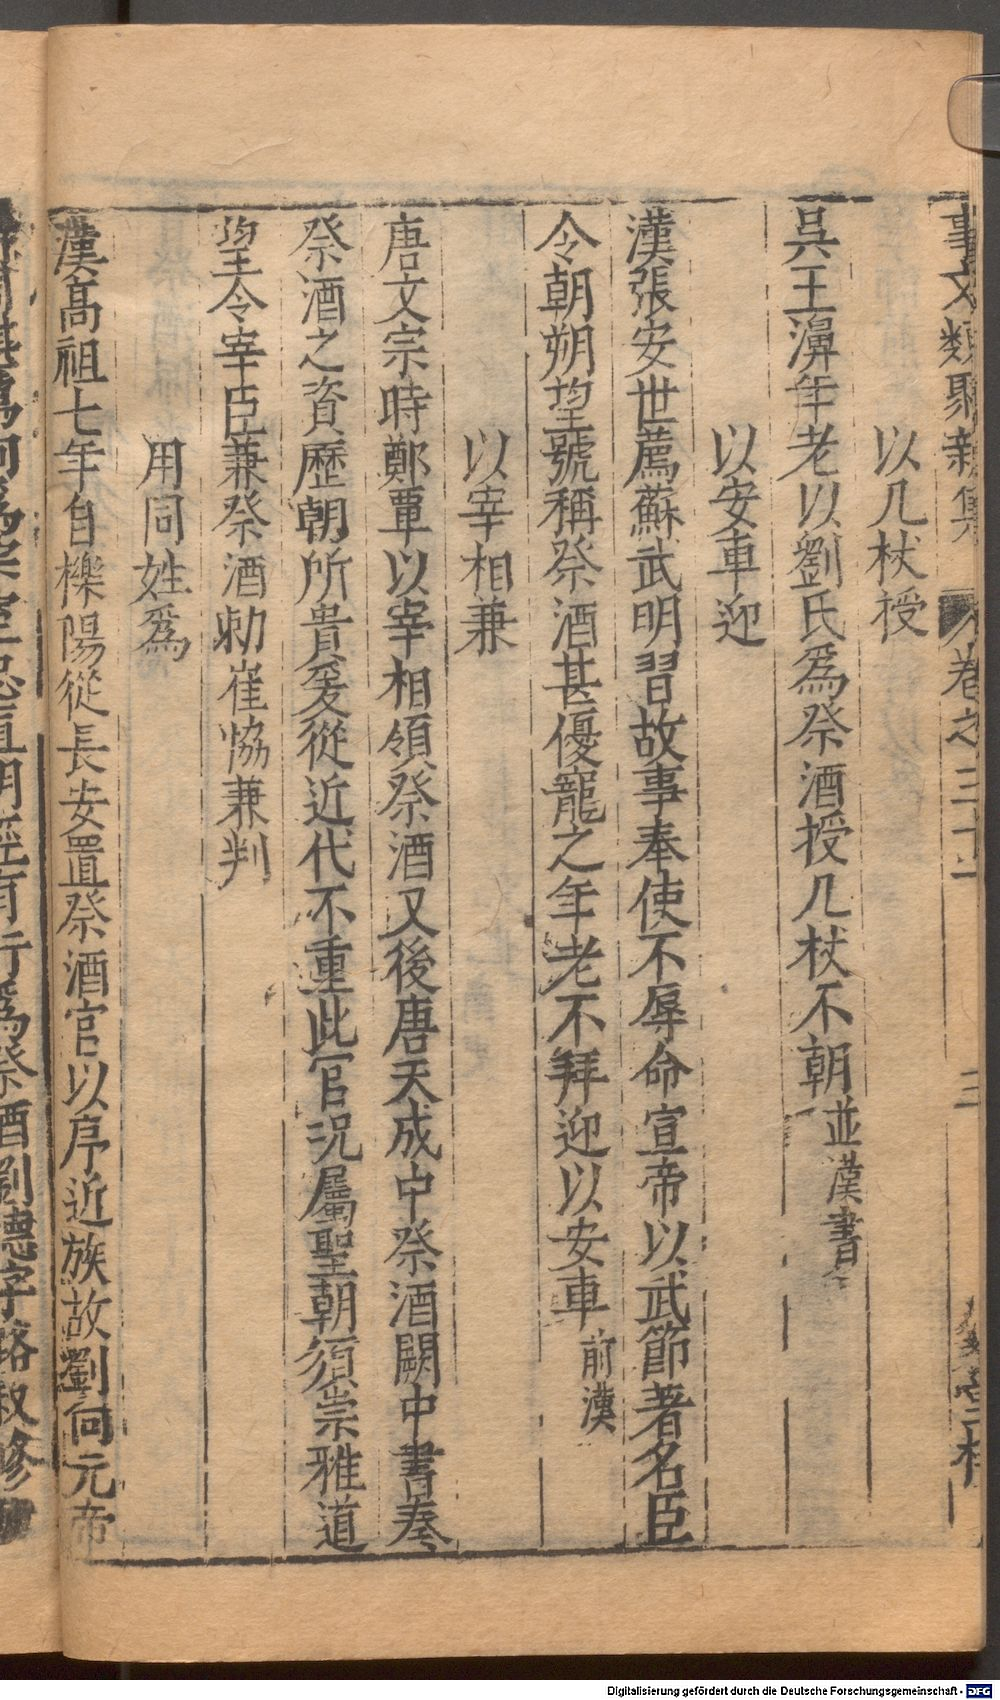 事文類聚新集 卷之三十一 三
以几杖授
吳王濞年老以劉氏爲祭酒授几杖不朝並漢書
以安車迎
漢張安世薦蘇武明習故事奉使不辱命宣帝以武節著名臣
令朝朔望號稱祭酒甚優寵之年老不拜迎以安車前漢
以宰相兼
唐文宗時鄭覃以宰相領祭酒又後唐天成中祭酒闕中書奏
祭酒之資歷朝所貴爰從近代不重此官況屬聖朝須崇雅道
望令宰臣兼祭酒勅崔協兼判
用同姓爲
漢高祖七年自櫟陽徙長安置祭酒官以序近族故劉向元帝
宗室忠直明經有行爲祭酒劉德字路叔修
Digitalisierung gefördert durch die Deutsche Forschungsgemeinschaft - DFG